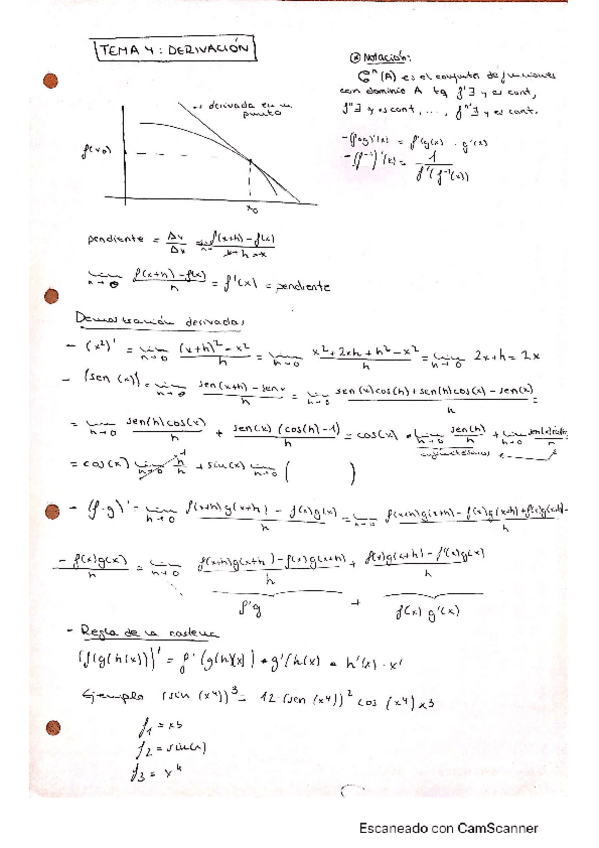 TEMA 4: DERIVACIÓN
⊛ Notación:
C^n(A) es el conjunto de funciones
con dominio A tq f'∃ y es cont,
f''∃ y es cont, ..., f^n'∃ y es cont.
derivada en un
punto
f(x0)
x0
-(f∘g)'(x) = f'(g(x)) · g'(x)
-(f^-1)'(x) = 1/f'(f^-1(x))
pendiente = Δy/Δx = f(x+h)-f(x)/x+h-x
lim h→0 f(x+h)-f(x)/h = f'(x) = pendiente
Demostración derivadas
- (x²)' = lim h→0 (x+h)²-x²/h = lim h→0 x²+2xh+h²-x²/h = lim h→0 2x+h = 2x
- (sen(x))' = lim h→0 sen(x+h)-senx/h = lim h→0 sen(x)cos(h)+sen(h)cos(x)-sen(x)/h =
= lim h→0 sen(h)cos(x)/h + sen(x)(cos(h)-1)/h = cos(x) · lim h→0 sen(h)/h + lim h→0
= cos(x) lim h→0 h/h + sin(x) lim h→0 ( )
- (f·g)' = lim h→0 f(x+h)g(x+h) - f(x)g(x)/h = lim h→0 f(x+h)g(x+h)-f(x)g(x+h)+f(x)g(x+h)-
-f(x)g(x)/h = lim h→0 f(x+h)g(x+h)-f(x)g(x+h)/h + f(x)g(x+h)-f(x)g(x)/h
f'g + f(x) g'(x)
- Regla de la cadena
(f(g(h(x))))' = f'(g(h)(x)) * g'(h(x) * h'(x) · x'
Ejemplo (sin(x⁴))³ = 12 (sen(x⁴))² cos(x⁴) x3
f1 = x3
f2 = sin(x)
f3 = x⁴
Escaneado con CamScanner